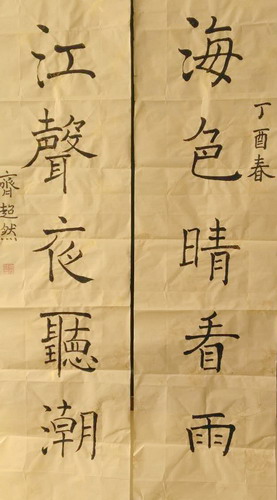 海色晴看雨
丁酉春
江聲夜聽潮
齊超然